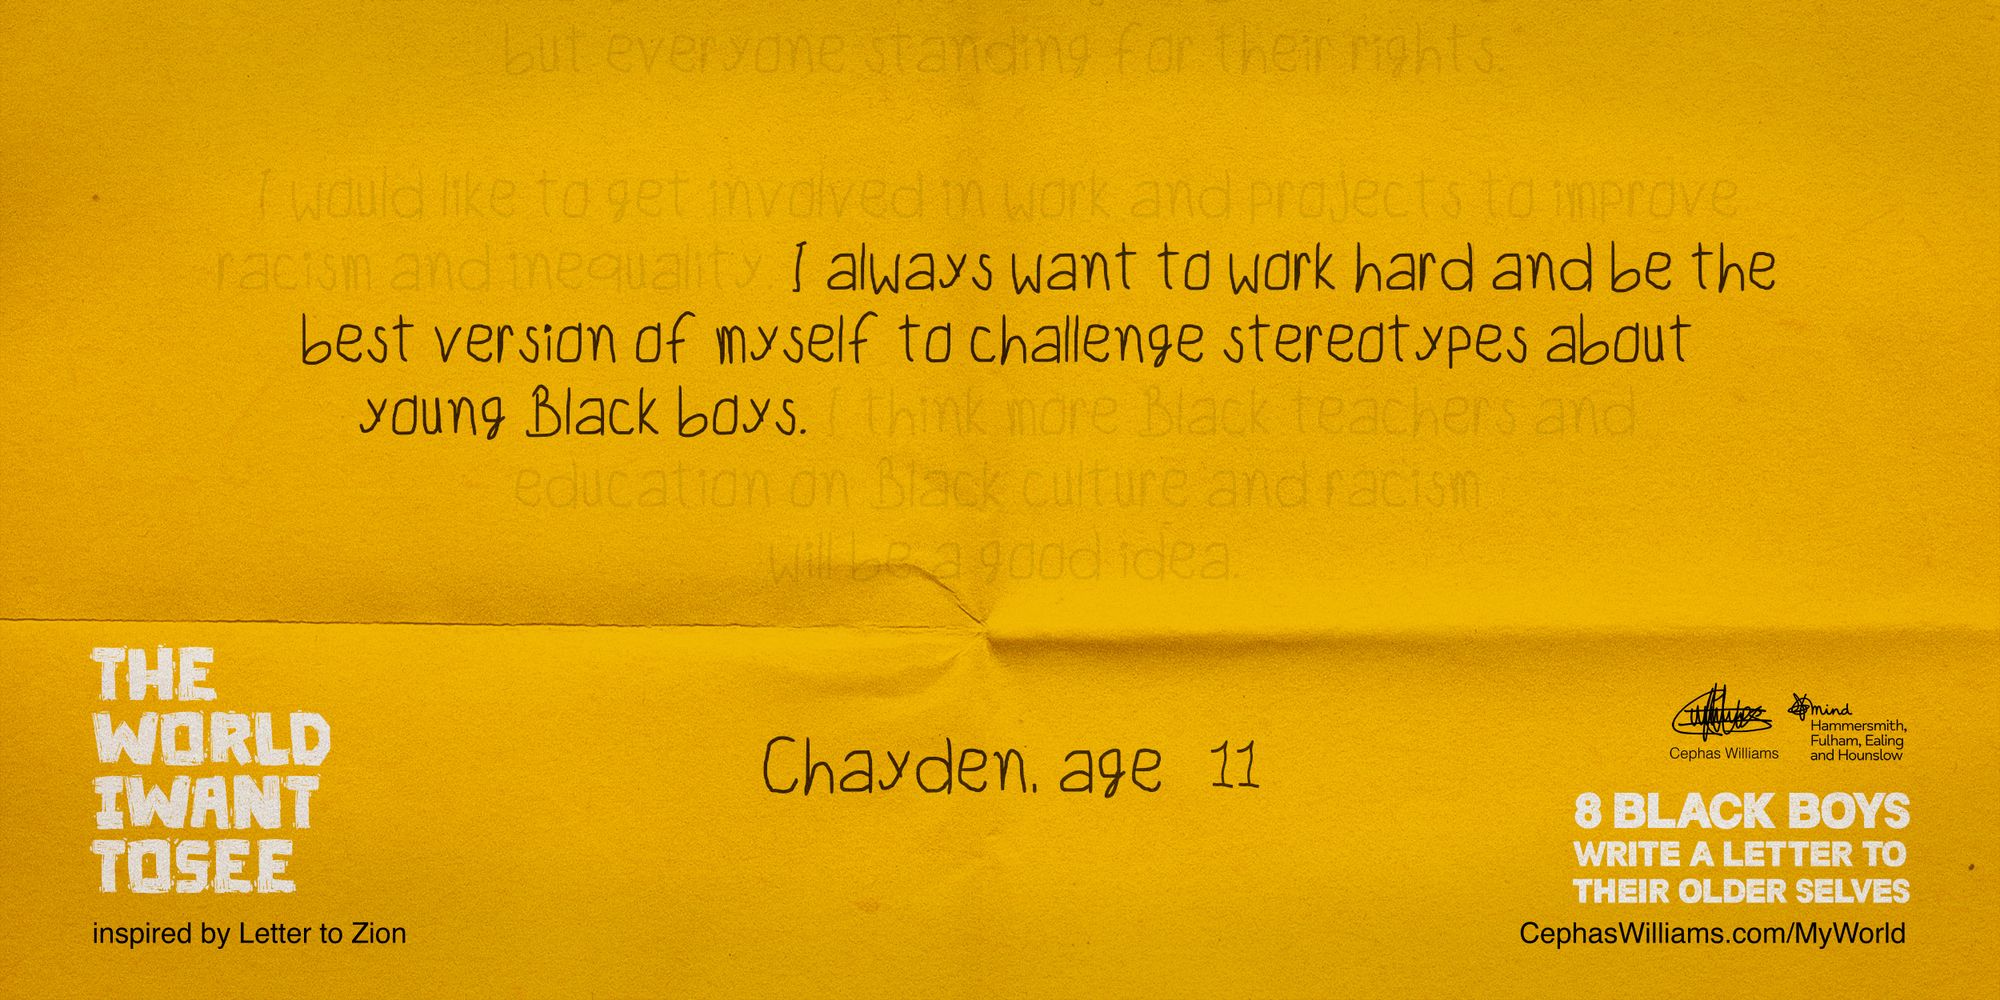 but everyone standing for their rights.
I would like to get involved in work and projects to improve
racism and inequality. I always want to work hard and be the
best version of myself to challenge stereotypes about
young Black boys. I think more Black teachers and
education on Black culture and racism
will be a good idea.
Chayden, age 11
THE
WORLD
I WANT
TO SEE
inspired by Letter to Zion
Cephas Williams
mind
Hammersmith,
Fulham, Ealing
and Hounslow
8 BLACK BOYS
WRITE A LETTER TO
THEIR OLDER SELVES
CephasWilliams.com/MyWorld